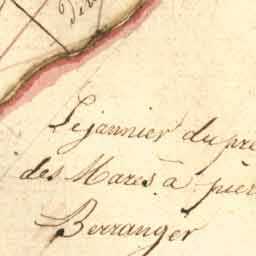 Lejannier du pre
des Mares à pier
Berranger